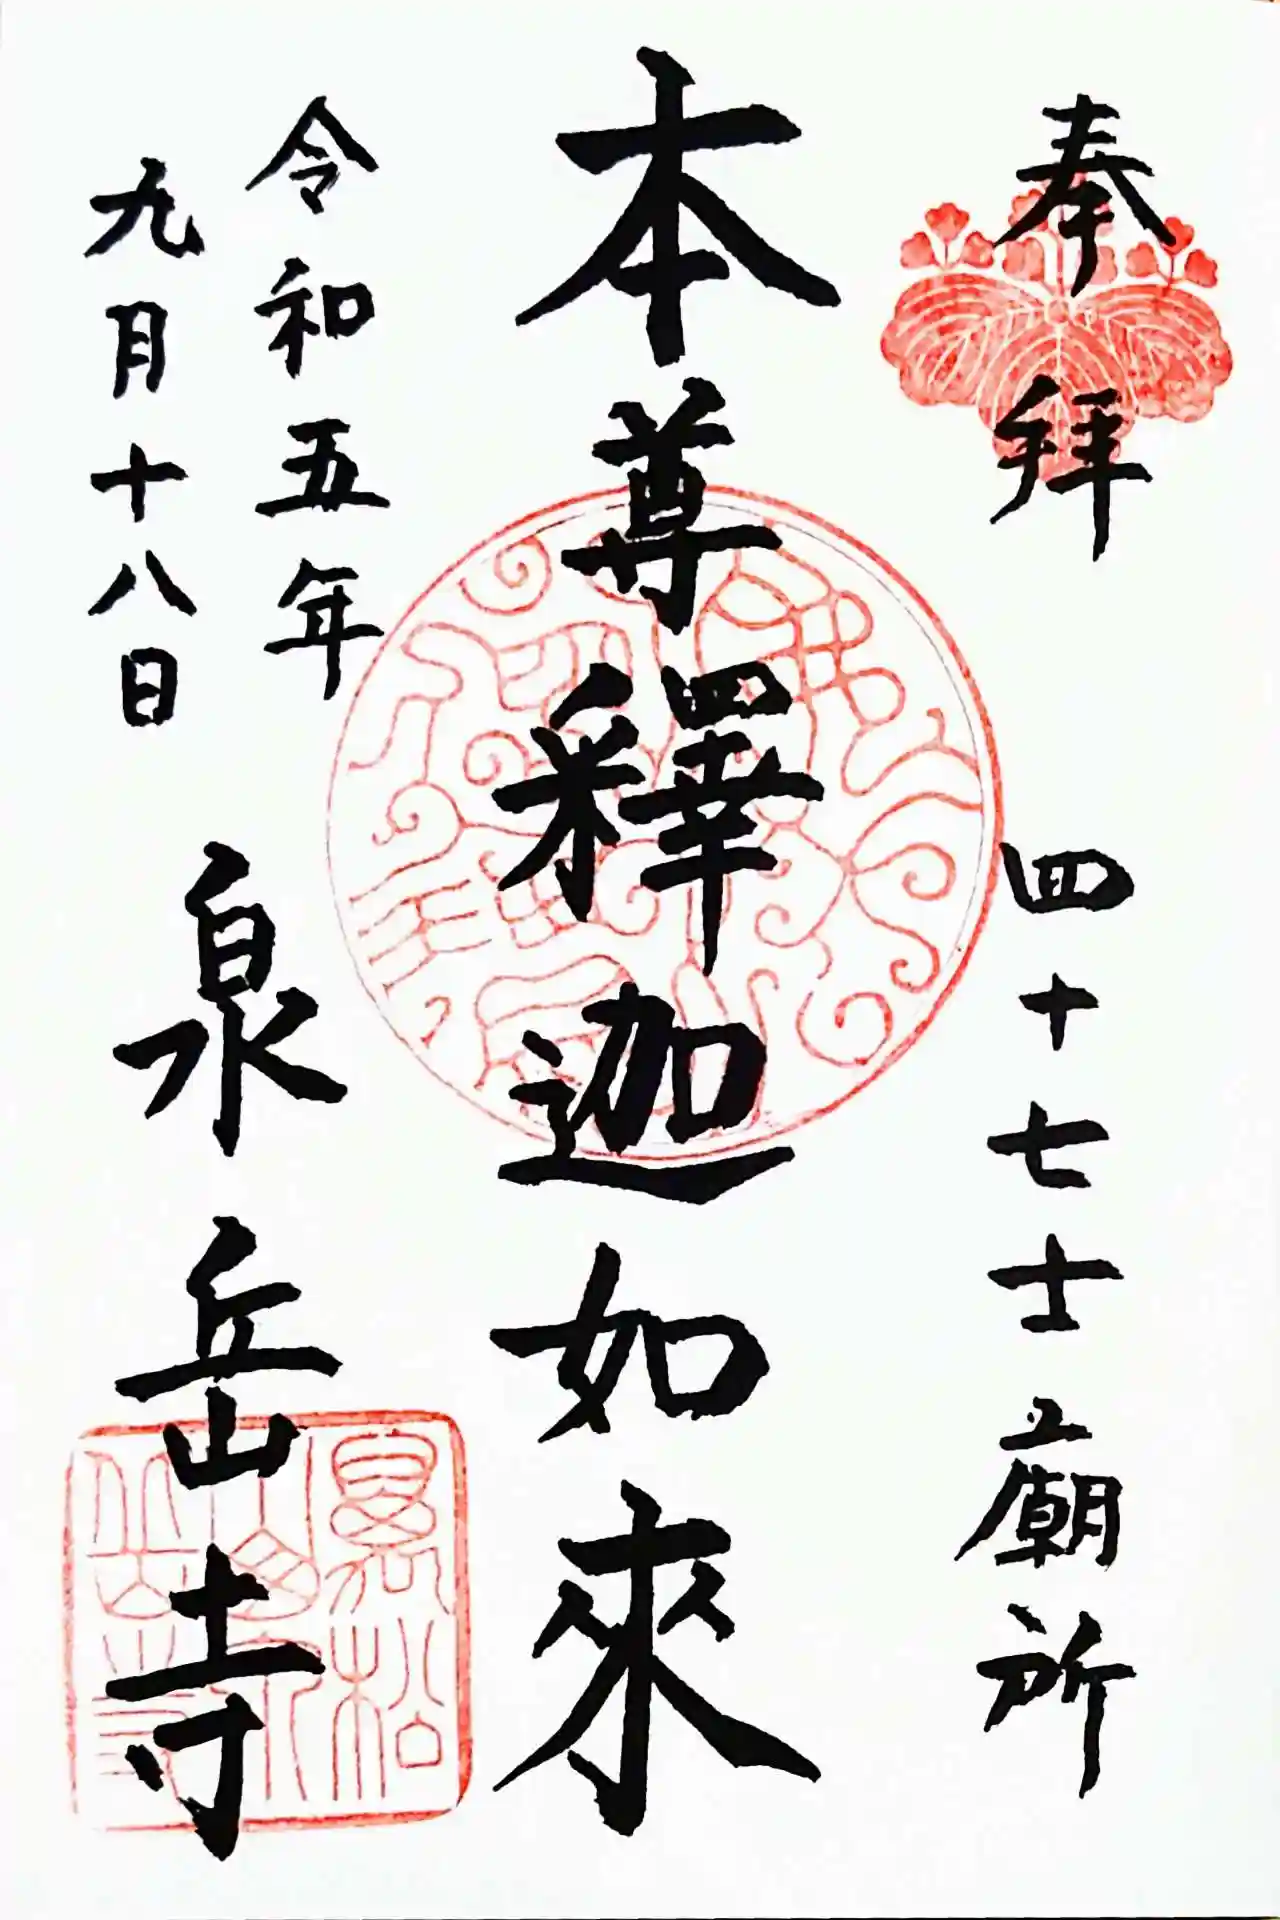 奉拜
四十七士廟所
本尊釋迦如來
令和五年
九月十八日
泉岳寺